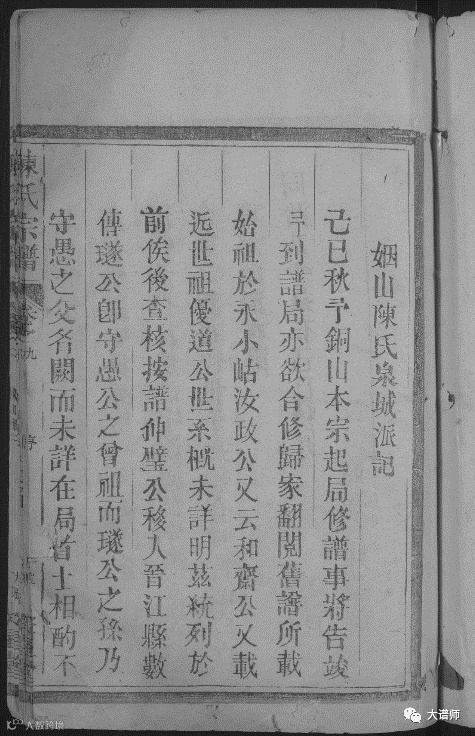 姻山陳氏泉城派記
己巳秋予銅山本宗起局修譜事將告竣
予到譜局亦欲合修歸家翻閱舊譜所載
始祖於永小岵汝政公又云和齋公又載
近世祖優道公世系概未詳明茲統列於
前俟後查核按譜仲璧公移入晉江縣數
傳璲公卽守愚公之曾祖而璲公之孫乃
守愚之父名闕而未詳在局首士相酌不
陳氏宗譜
序
大谱师